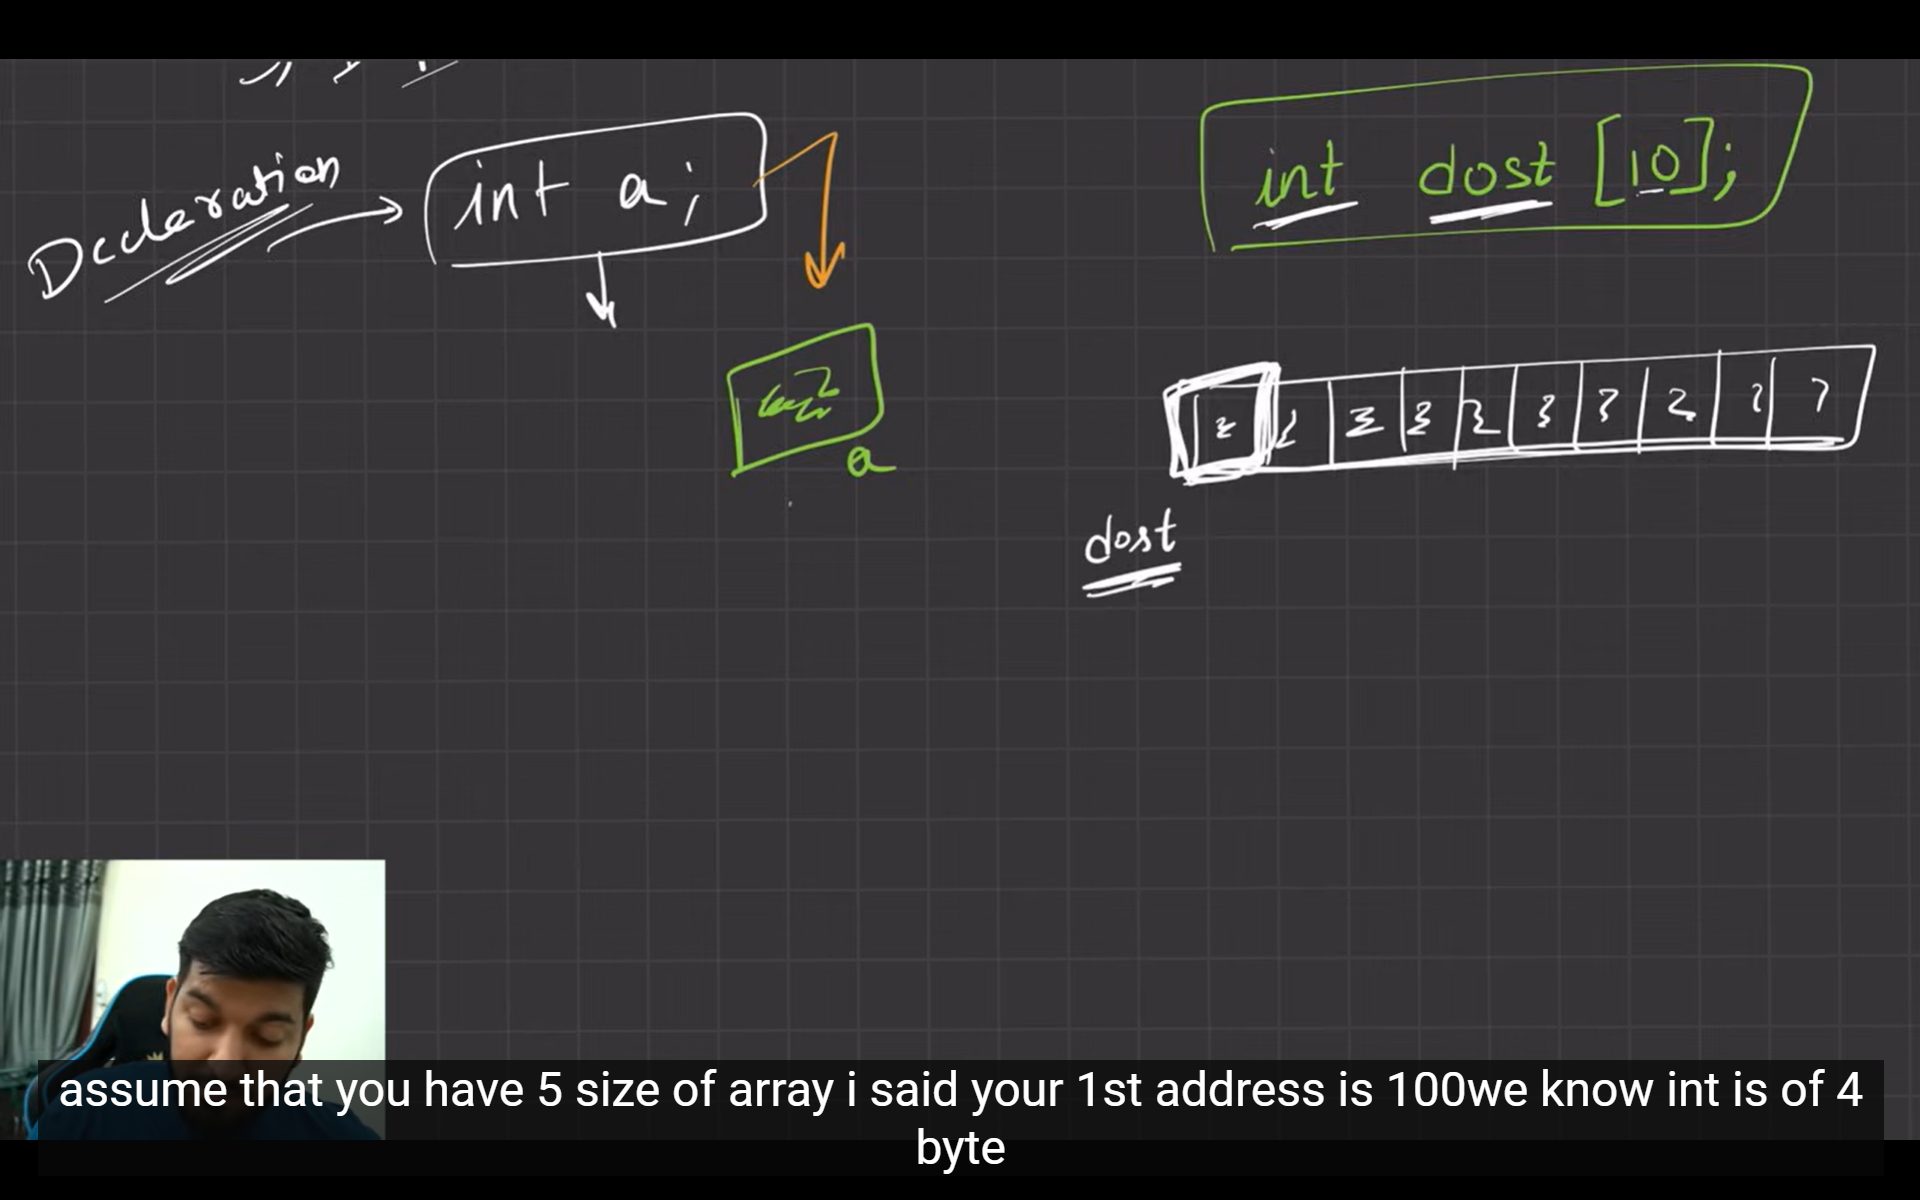 Decleration
int a;
int dost [10];
a
dost
assume that you have 5 size of array i said your 1st address is 100we know int is of 4
byte